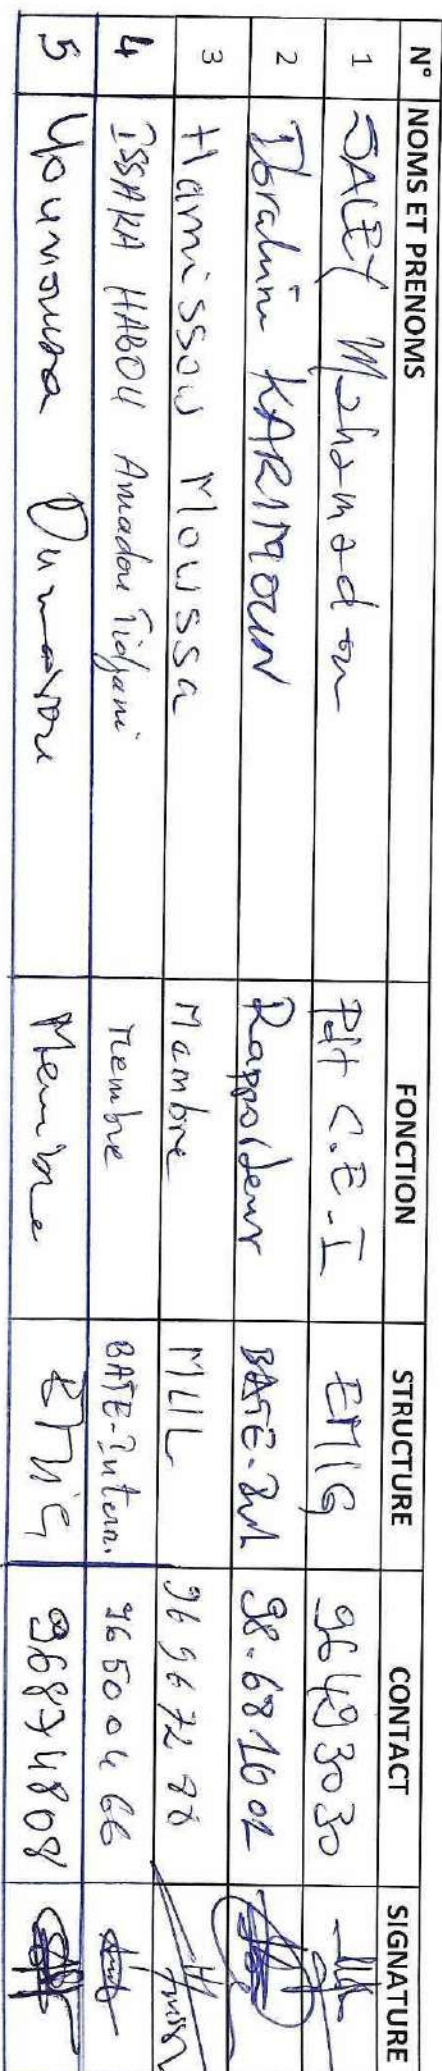 N° NOMS ET PRENOMS FONCTION STRUCTURE CONTACT SIGNATURE
1 SALEY Mahamadou Pdt C.E.I EMIG 96493030
2 Ibrahim KARIMOUN Rapporteur BATE- 98.681602
3 Hamissou Moussa Mambre 969672
4 ISSAKA HABOU Amadou Tidjani Membre BATE-Intern. 96500466
5 Younoussa Oumarou Membre EMIG 96874808